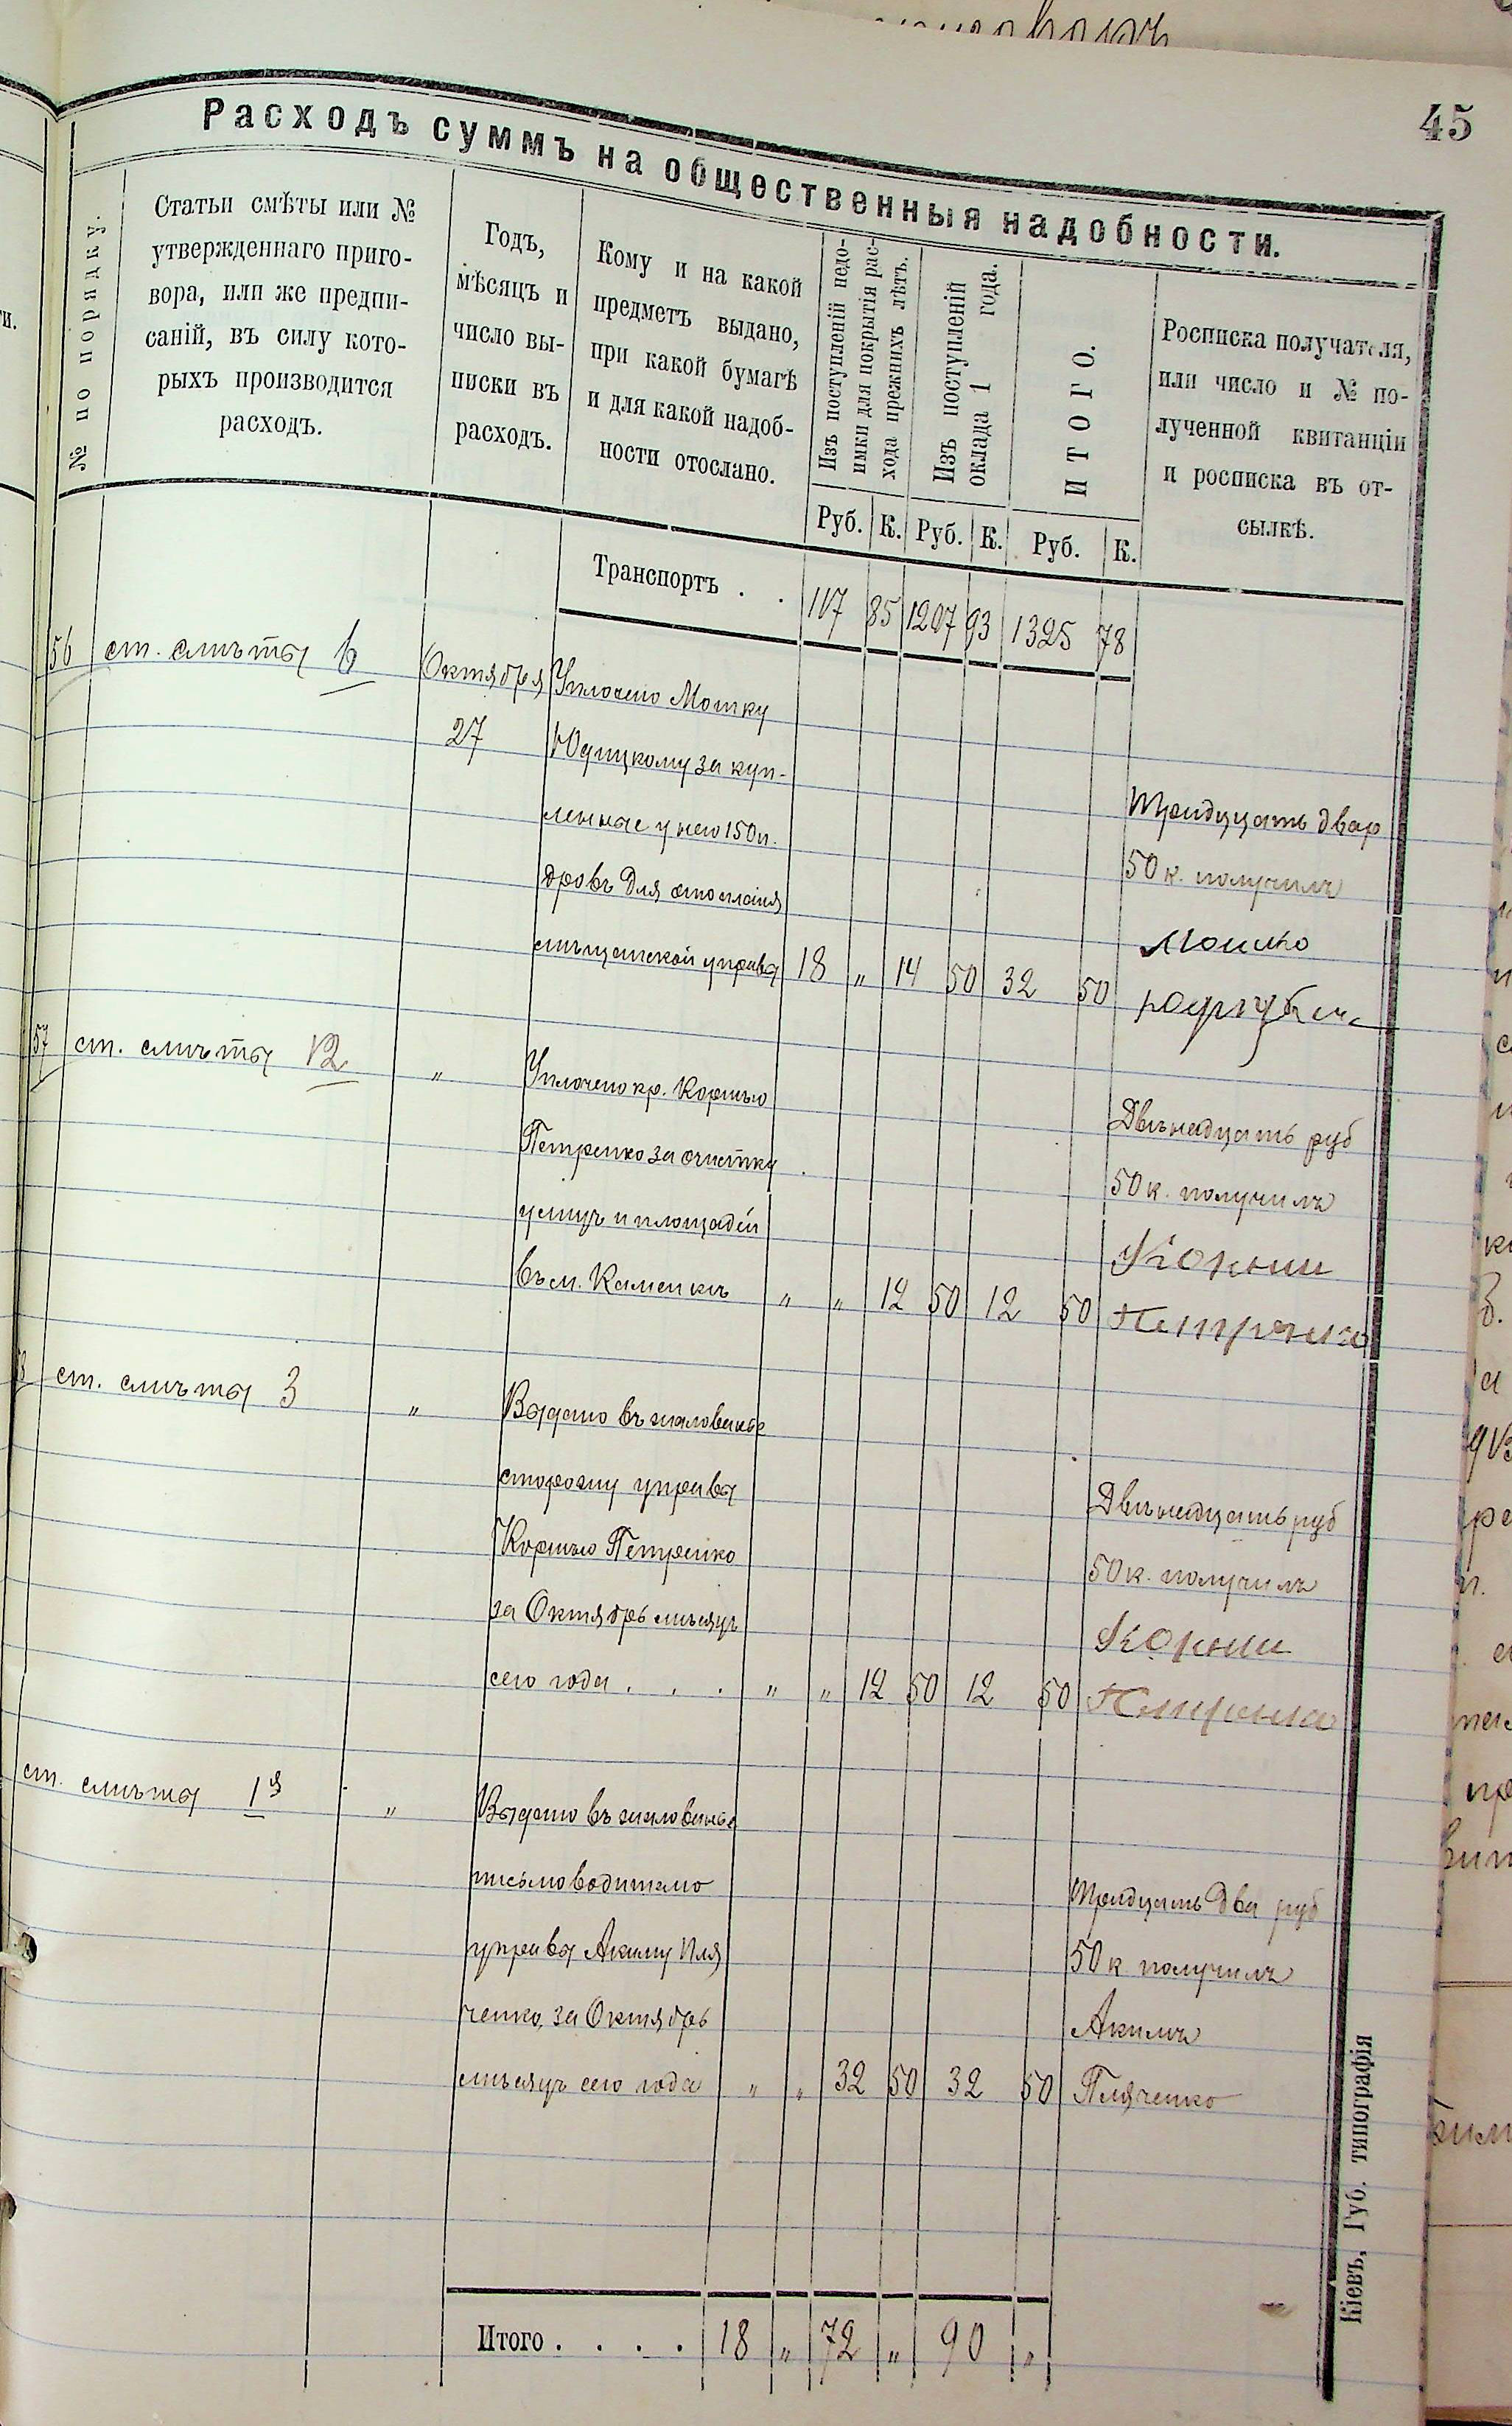 45
Расходъ суммъ на общественныя надобности.
№ по порядку.
Статьи смѣты или №
утвержденнаго приго-
вора, или же предпи-
саній, въ силу кото-
рыхъ производится
расходъ.
Годъ,
мѣсяцъ и
число вы-
писки въ
расходъ.
Кому и на какой
предметъ выдано,
при какой бумагѣ
и для какой надоб-
ности отослано.
Изъ поступленій недо-
имки для покрытія рас-
хода прежнихъ лѣтъ.
Изъ поступленій
оклада 1 года.
ИТОГО.
Росписка получателя,
или число и № по-
лученной квитанціи
и росписка въ от-
сылкѣ.
Руб. К. Руб. К. Руб. К.
Транспортъ . . 117 85 1207 93 1325 78
56 ст. смѣты 6 Октября Уплочено Мошку
27 Юдицкому за куп-
ленные у него 150 п.
дровъ для отопленія
мѣщанской управы 18 „ 14 50 32 50
Тридцать два р
50 к. получилъ
Мошко
57 ст. смѣты 12 „ Уплочено кр. Корнѣю
Петренко за очистку
улицъ и площадей
въ м. Каменкѣ „ „ 12 50 12 50
Двѣнадцать руб
50 к. получилъ
Корнии
Петренко
8 ст. смѣты 3 „ Выдано въ жалованье
сторожу управы
Корнѣю Петренко
за Октябрь мѣсяцъ
сего года . . . „ „ 12 50 12 50
Двѣнадцать руб
50 к. получилъ
Корнии
ст. смѣты 1й „ Выдано въ жалованье
письмоводителю
управы Акиму Пля
ченко, за Октябрь
мѣсяцъ сего года „ „ 32 50 32 50
Тридцать два руб
50 к получилъ
Акимъ
Пляченко
Итого . . . . 18 „ 72 „ 90 „
Кіевъ, Губ. типографія